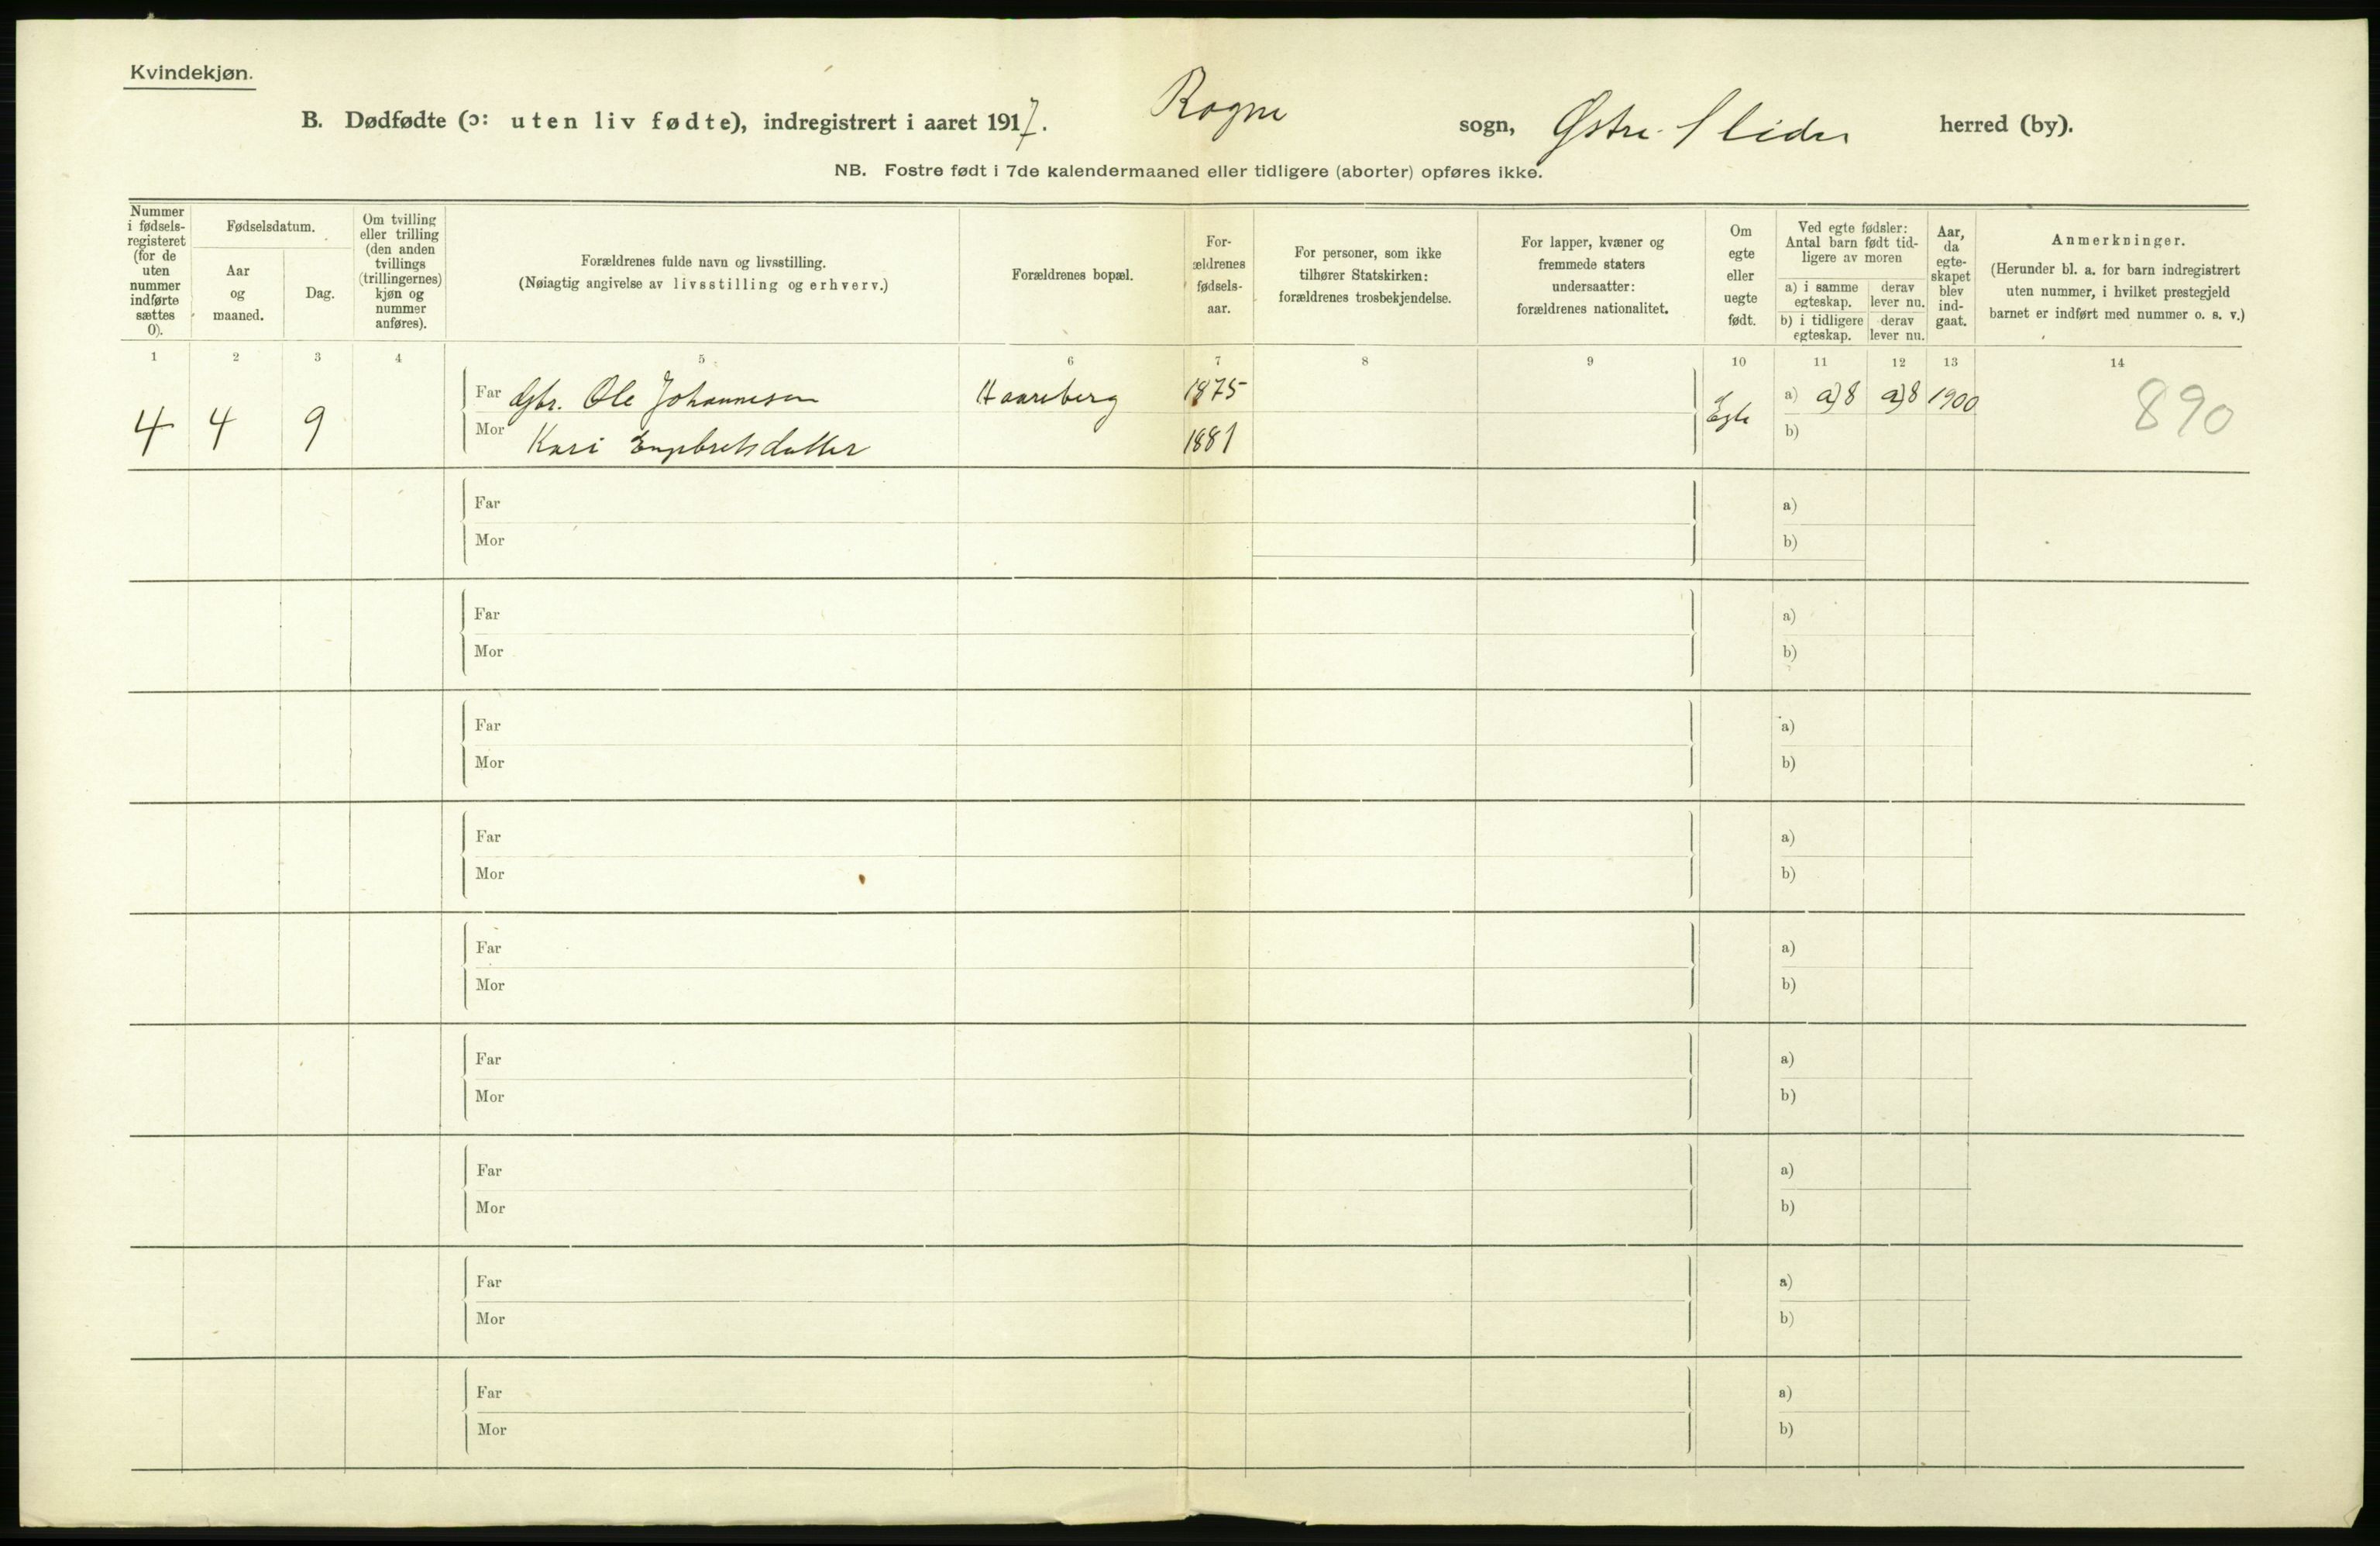 Kvindekjøn.
B. Dødfødte (ɔ: uten liv fødte), indregistrert i aaret 1917. Rogne sogn, Østre Slidre herred (by).
NB. Fostre født i 7de kalendermaaned eller tidligere (aborter) opføres ikke.
Nummer
i fødsels-
registeret
(for de
uten
nummer
indførte
sættes
0).
Fødselsdatum.
Aar
og
maaned.
Dag.
Om tvilling
eller trilling
(den anden
tvillings
(trillingernes)
kjøn og
nummer
anføres).
Forældrenes fulde navn og livsstilling.
(Nøiagtig angivelse av livsstilling og erhverv.)
Forældrenes bopæl.
For-
ældrenes
fødsels-
aar.
For personer, som ikke
tilhører Statskirken:
forældrenes trosbekjendelse.
For lapper, kvæner og
fremmede staters
undersaatter:
forældrenes nationalitet.
Om
egte
eller
uegte
født.
Ved egte fødsler:
Antal barn født tid-
ligere av moren
a) i samme
egteskap.
derav
lever nu.
b) i tidligere
egteskap.
derav
lever nu.
Aar,
da
egte-
skapet
blev
ind-
gaat.
Anmerkninger.
(Herunder bl. a. for barn indregistrert
uten nummer, i hvilket prestegjeld
barnet er indført med nummer o. s. v.)
1 2 3 4 5 6 7 8 9 10 11 12 13 14
Far Gbr. Ole Johannesen Haareberg 1875 a) a)8 a)8 1900
4 4 9 Egte 890
Mor Kari Engebretsdatter 1881 b)
Far a)
Mor b)
Far a)
Mor b)
Far a)
Mor b)
Far a)
Mor b)
Far a)
Mor b)
Far a)
Mor b)
Far a)
Mor b)
Far a)
Mor b)
Far a)
Mor b)